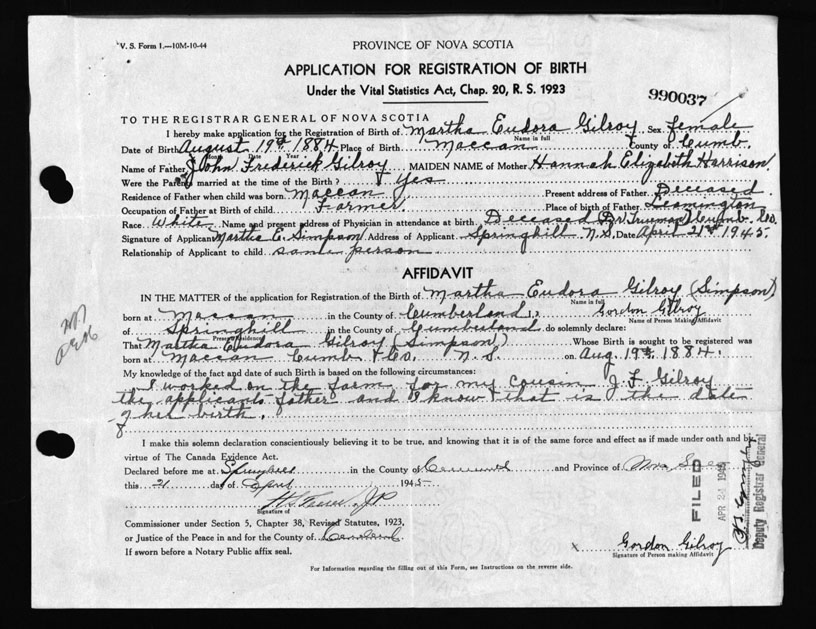 V. S. Form 1.—10M-10-44
PROVINCE OF NOVA SCOTIA
APPLICATION FOR REGISTRATION OF BIRTH
Under the Vital Statistics Act, Chap. 20, R. S. 1923
990037
TO THE REGISTRAR GENERAL OF NOVA SCOTIA
I hereby make application for the Registration of Birth of Martha Eudora Gilroy Sex female
Name in full
Date of Birth August 19th 1884 Place of Birth Maccan County of Cumb.
Month Date Year
Name of Father John Frederick Gilroy MAIDEN NAME of Mother Hannah Elizabeth Harrison
Were the Parents married at the time of the Birth? Yes
Residence of Father when child was born Maccan Present address of Father Deceased
Occupation of Father at Birth of child Farmer Place of birth of Father Leamington
Race White Name and present address of Physician in attendance at birth Deceased Dr. Truman Cumb. Co.
Signature of Applicant Martha E. Simpson Address of Applicant Springhill N.S. Date April 21st 1945
Relationship of Applicant to child same person
AFFIDAVIT
IN THE MATTER of the application for Registration of the Birth of Martha Eudora Gilroy (Simpson)
Name in full
born at Maccan in the County of Cumberland, Gordon Gilroy
Name of Person Making Affidavit
of Springhill in the County of Cumberland do solemnly declare:
Present Residence
That Martha Eudora Gilroy (Simpson) Whose Birth is sought to be registered was
born at Maccan Cumb. Co. N. S. on Aug. 19th 1884.
My knowledge of the fact and date of such Birth is based on the following circumstances:
I worked on the farm for my cousin J. F. Gilroy
the applicants father and I know that is the date
of her birth.
I make this solemn declaration conscientiously believing it to be true, and knowing that it is of the same force and effect as if made under oath and by
virtue of The Canada Evidence Act.
Declared before me at Springhill in the County of Cumberland and Province of Nova Scotia
this 21 day of April 1945
J P
Signature of
Commissioner under Section 5, Chapter 38, Revised Statutes, 1923,
or Justice of the Peace in and for the County of Cumberland
If sworn before a Notary Public affix seal.
x Gordon Gilroy
Signature of Person making Affidavit
For Information regarding the filling out of this Form, see Instructions on the reverse side.
FILED
APR 24 1945
Deputy Registrar General